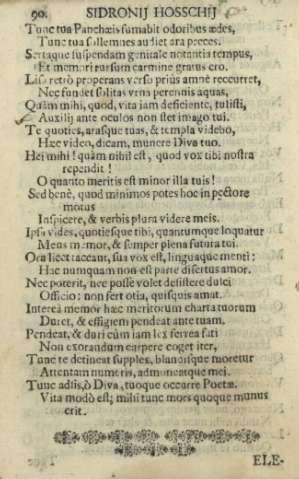 90. SIDRONIJ HOSSCHIJ
Tunc tua Panchæis fumabit odoribus ædes,
Tunc tua sollemnes audiet ara preces.
Sertaque suspendam geniale notantia tempus,
Et memori rursum carmine gratus ero.
Lisa retrò properans verso priùs amne recurret,
Nec fundet solitas vrna perennis aquas,
Quàm mihi, quod, vita iam deficiente, tulisti,
Auxilij ante oculos non stet imago tui.
Te quoties, arasque tuas, & templa videbo,
Hæc video, dicam, munere Diva tuo.
Hei mihi! quàm nihil est, quod vox tibi nostra
rependit!
O quanto meritis est minor illa tuis!
Sed benè, quod minimos potes hoc in pectore
motus
Inspicere, & verbis plura videre meis.
Ipsa vides, quotiesque tibi, quantumque loquatur
Mens memor, & semper plena futura tui.
Ora licet taceant, sua vox est, linguaque menti:
Hac numquam non est parte disertus amor.
Nec poterit, nec posse volet desistere dulci
Officio: non fert otia, quisquis amat.
Intereà memor hæc meritorum charta tuorum
Duret, & effigiem pendeat ante tuam.
Pendeat, & duri cùm iam lex ferrea fati
Non exorandum carpere coget iter,
Tunc te detineat supplex, blandisque moretur
Attentam numeris, admoneatque mei.
Tunc adsis, ò Diva, tuoque occurre Poetæ.
Vita modò est; mihi tunc mors quoque munus
erit.
ELE-